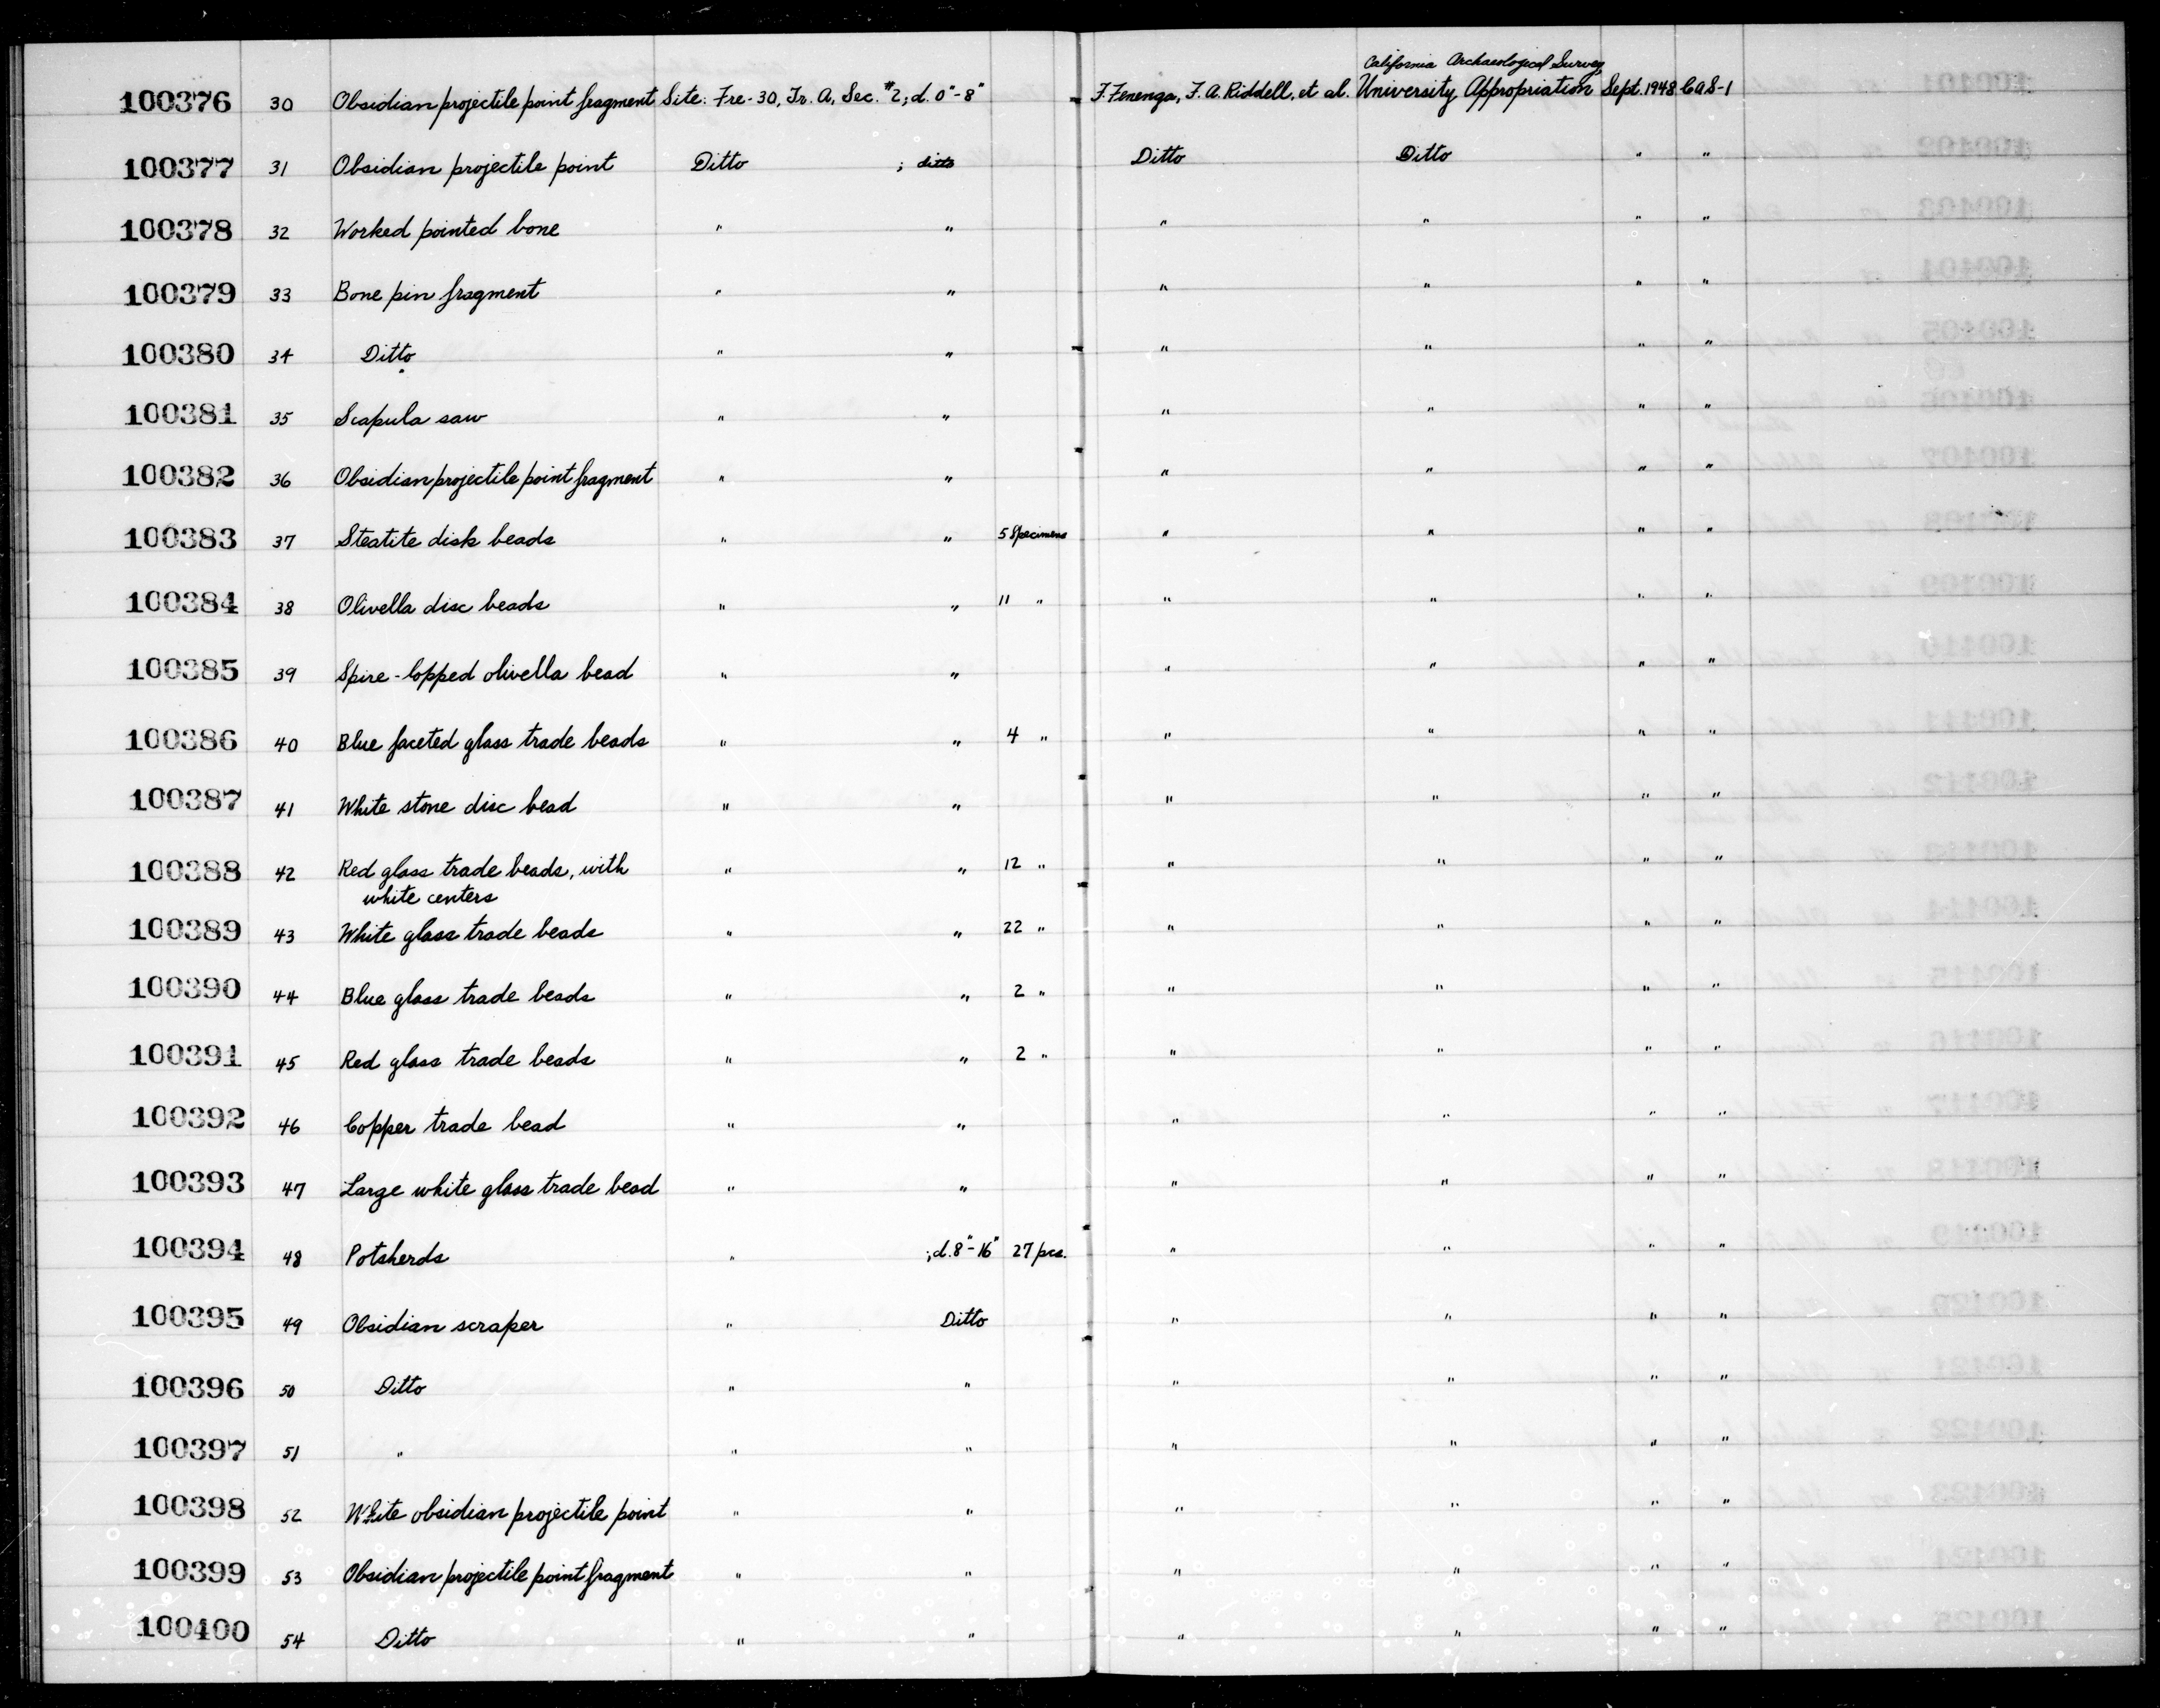 California Archaeological Survey
100376 30 Obsidian projectile point fragment Site: Fre-30, Tr. A, Sec. #2; d. 0"-8" F. Fenenga, F. A. Riddell, et al. University Appropriation Sept. 1948 CAS-1
100377 31 Obsidian projectile point Ditto ; ditto Ditto Ditto " "
100378 32 Worked pointed bone " " " " " "
100379 33 Bone pin fragment " " " " " "
100380 34 Ditto " " " " " "
100381 35 Scapula saw " " " " " "
100382 36 Obsidian projectile point fragment " " " " " "
100383 37 Steatite disk beads " " 5 Specimens " " " "
100384 38 Olivella disc beads " " 11 " " " " "
100385 39 Spire-lopped olivella bead " " " " " "
100386 40 Blue faceted glass trade beads " " 4 " " " " "
100387 41 White stone disc bead " " " " " "
100388 42 Red glass trade beads, with " " 12 " " " " "
white centers
100389 43 White glass trade beads " " 22 " " " " "
100390 44 Blue glass trade beads " " 2 " " " " "
100391 45 Red glass trade beads " " 2 " " " " "
100392 46 Copper trade bead " " " " " "
100393 47 Large white glass trade bead " " " " " "
100394 48 Potsherds " ; d. 8"-16" 27 pcs. " " " "
100395 49 Obsidian scraper " Ditto " " " "
100396 50 Ditto " " " " " "
100397 51 " " " " " " "
100398 52 White obsidian projectile point " " " " " "
100399 53 Obsidian projectile point fragment " " " " " "
100400 54 Ditto " " " " " "